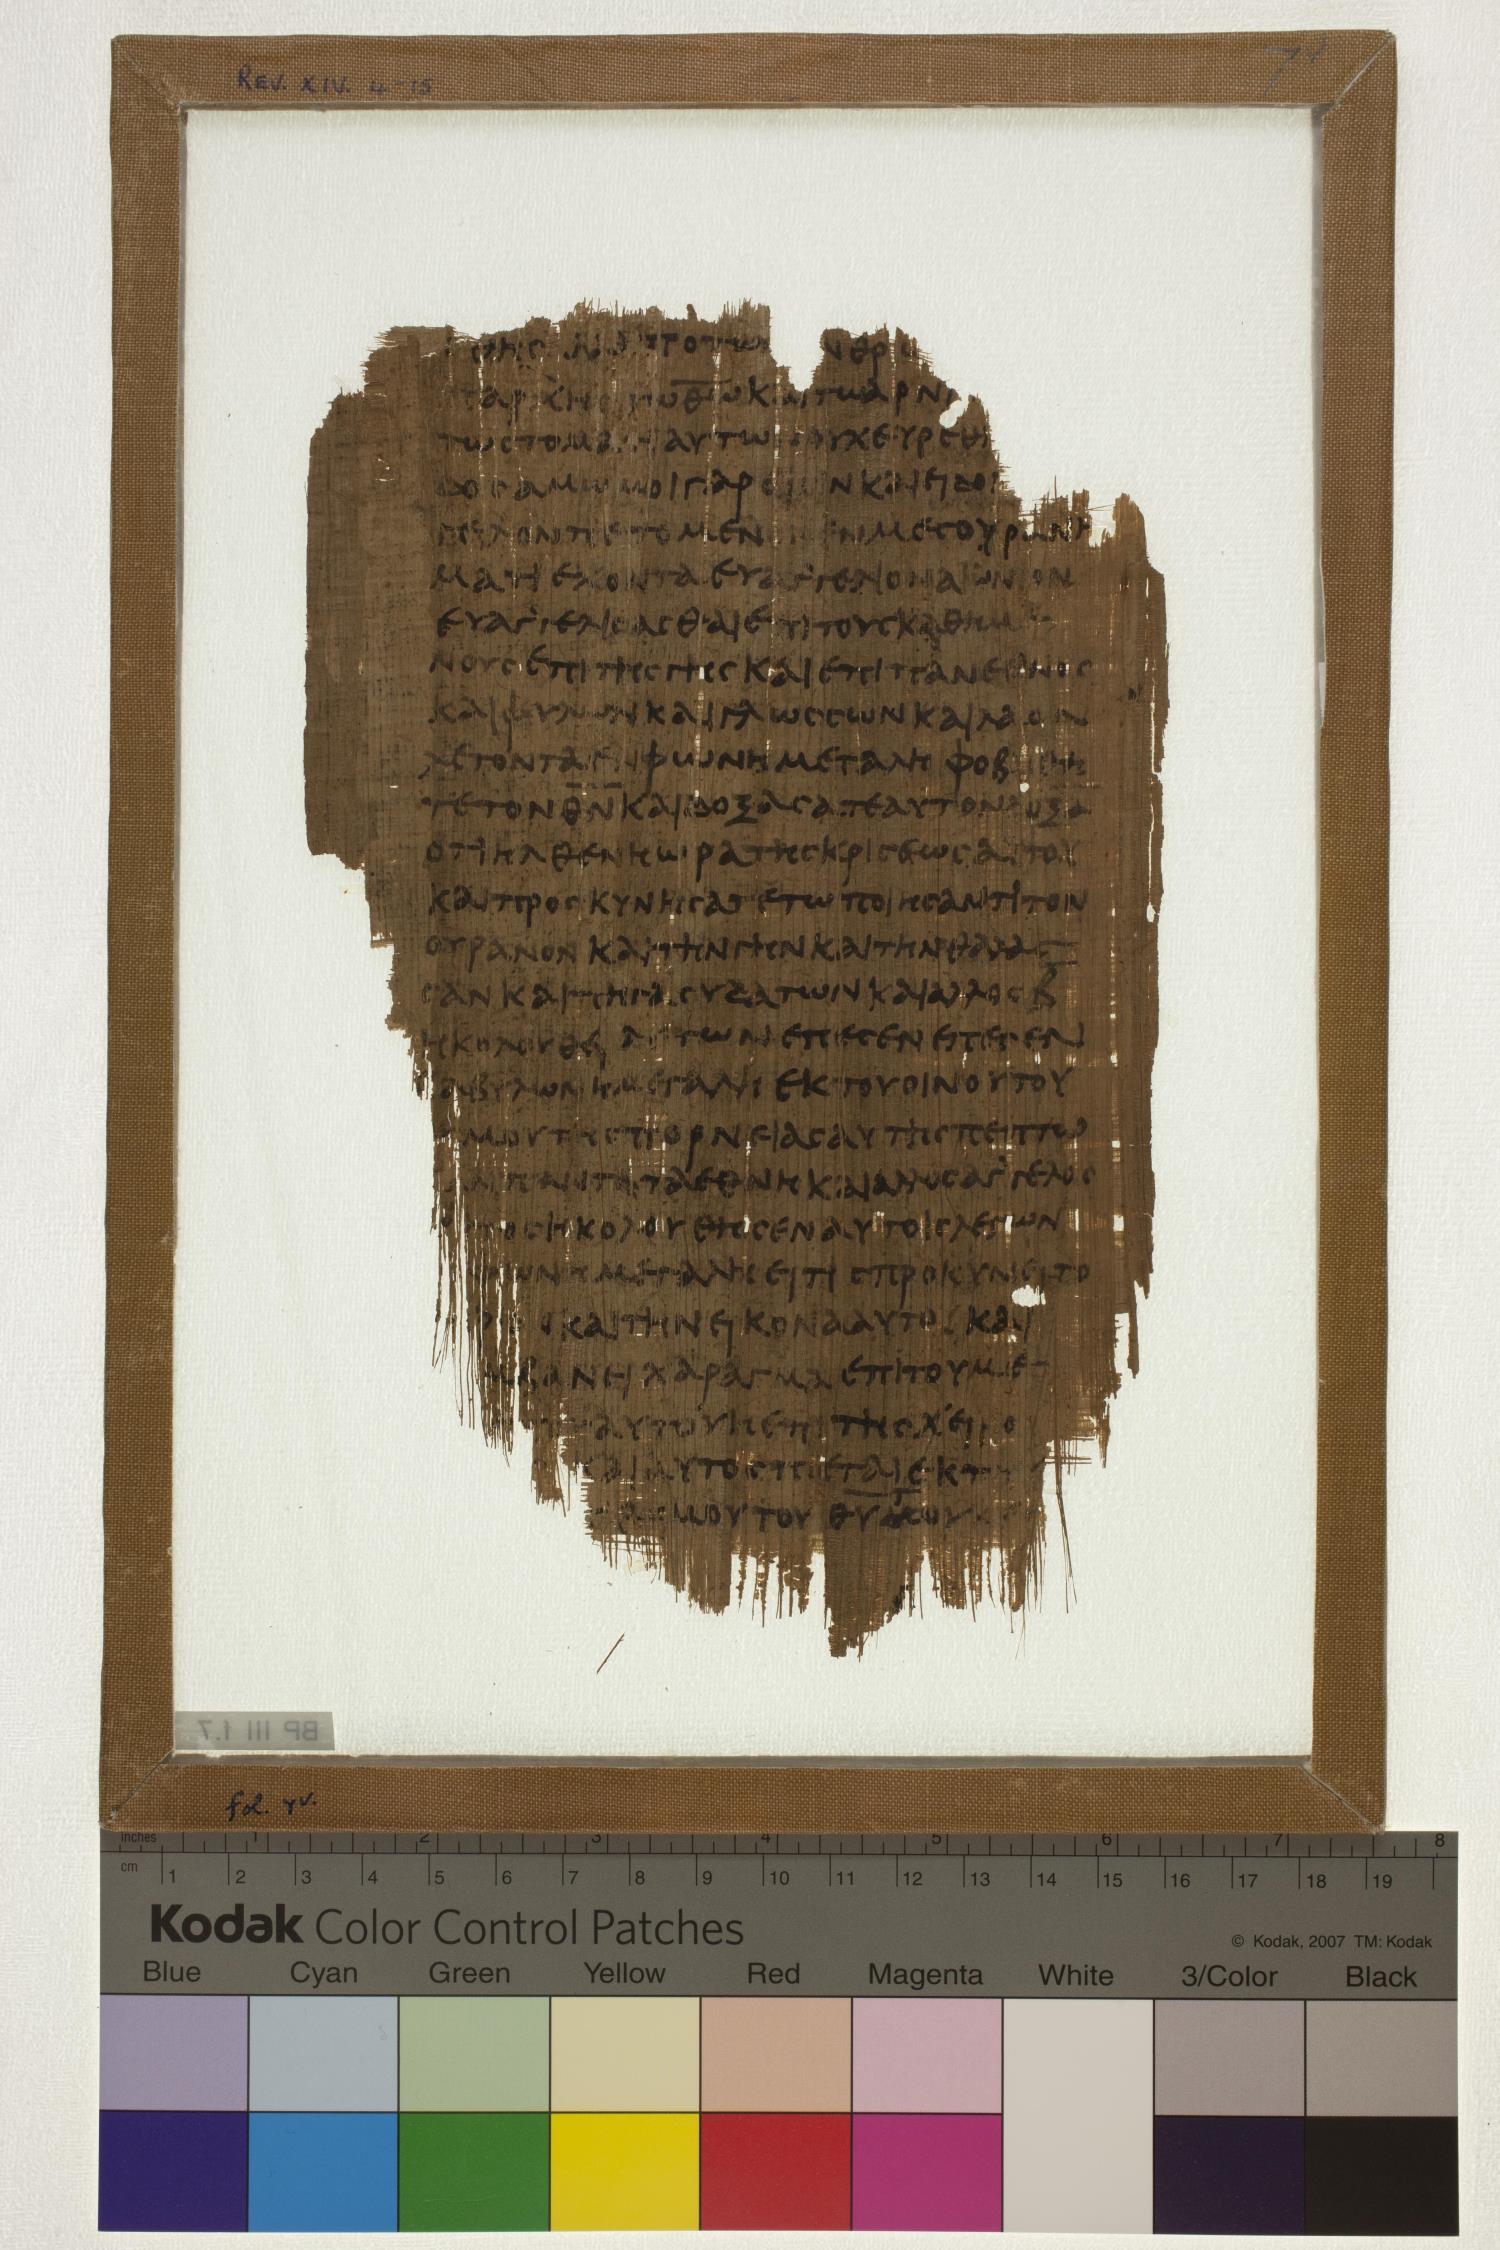 REV. XIV. 4-15
7ᵛ
ΤΩ ΘΩ ΚΑΙ ΤΩ ΑΡΝΙ
ΤΩ ΣΤΟΜΑΤΙ ΑΥΤΩΝ ΟΥΧ ΕΥΡΕΘΗ
ΑΜΩΜΟΙ ΓΑΡ ΕΙΣΙΝ ΚΑΙ ΕΙΔΟΝ
ΓΕΛΟΝ ΠΕΤΟΜΕΝΟΝ ΕΝ ΜΕΣΟΥΡΑΝΗ
ΜΑΤΙ ΕΧΟΝΤΑ ΕΥΑΓΓΕΛΙΟΝ ΑΙΩΝΙΟΝ
ΕΥΑΓΓΕΛΙΣΑΣΘΑΙ ΕΠΙ ΤΟΥΣ ΚΑΘΗΜΕ
ΝΟΥΣ ΕΠΙ ΤΗΣ ΓΗΣ ΚΑΙ ΕΠΙ ΠΑΝ ΕΘΝΟΣ
ΚΑΙ ΦΥΛΩΝ ΚΑΙ ΓΛΩΣΣΩΝ ΚΑΙ ΛΑΟΝ
ΦΩΝΗ ΜΕΓΑΛΗ ΦΟΒΗΘΗ
ΤΕ ΤΟΝ ΘΝ ΚΑΙ ΔΟΞΑΣΑΤΕ ΑΥΤΟΝ
ΟΤΙ ΗΛΘΕΝ Η ΩΡΑ ΤΗΣ ΚΡΙΣΕΩΣ ΑΥΤΟΥ
ΚΑΙ ΠΡΟΣΚΥΝΗΣΑΤΕ ΤΩ ΠΟΙΗΣΑΝΤΙ ΤΟΝ
ΟΥΡΑΝΟΝ ΚΑΙ ΤΗΝ ΓΗΝ ΚΑΙ ΤΗΝ ΘΑΛΑΣ
ΣΑΝ ΚΑΙ ΠΗΓΑΣ ΥΔΑΤΩΝ ΚΑΙ ΑΛΛΟΣ Β̅
ΗΚΟΛΟΥΘΕΙ ΑΥΤΩΝ ΕΠΕΣΕΝ ΕΠΕΣΕΝ
ΑΒΥΛΩΝ Η ΜΕΓΑΛΗ ΕΚ ΤΟΥ ΟΙΝΟΥ ΤΟΥ
ΜΟΥ ΤΗΣ ΠΟΡΝΕΙΑΣ ΑΥΤΗΣ ΠΕΠΤΩ
ΠΑΝΤΑ ΤΑ ΕΘΝΗ ΚΑΙ ΑΛΛΟΣ ΑΓΓΕΛΟΣ
ΤΟΣ ΗΚΟΛΟΥΘΗΣΕΝ ΑΥΤΟΙΣ ΛΕΓΩΝ
ΩΝΗ ΜΕΓΑΛΗ ΕΙ ΤΙΣ ΠΡΟΚΥΝΕΙ ΤΟ
ΚΑΙ ΤΗΝ ΕΙΚΟΝΑ ΑΥΤΟΥ ΚΑΙ
ΜΒΑΝΕΙ ΧΑΡΑΓΜΑ ΕΠΙ ΤΟΥ ΜΕ
ΑΥΤΟΥ Η ΕΠΙ ΤΗΣ ΧΕΙΡΟ
ΚΑΙ ΑΥΤΟΣ ΠΙΕΤΑΙ ΕΚ Τ
ΜΟΥ ΤΟΥ ΘΥ
BP III f.7
fol. 7ᵛ.
inches 1 2 3 4 5 6 7 8
cm 1 2 3 4 5 6 7 8 9 10 11 12 13 14 15 16 17 18 19
Kodak Color Control Patches
© Kodak, 2007 TM: Kodak
Blue Cyan Green Yellow Red Magenta White 3/Color Black